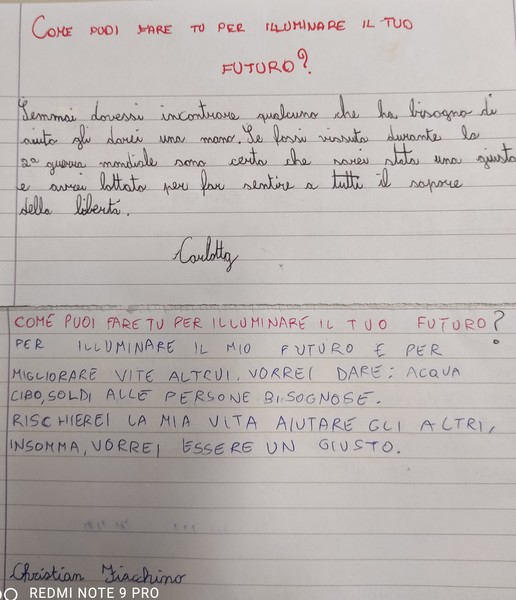 COME PUOI FARE TU PER ILLUMINARE IL TUO
FUTURO?
Semmai dovessi incontrare qualcuno che ha bisogno di
aiuto gli darei una mano. Se fossi vissuta durante la
2ª guerra mondiale sono certa che sarei stata una giusta
e avrei lottato per far sentire a tutti il sapore
della libertà.
Carlotta
COME PUOI FARE TU PER ILLUMINARE IL TUO FUTURO?
PER ILLUMINARE IL MIO FUTURO E PER
MIGLIORARE VITE ALTRUI, VORREI DARE: ACQUA
CIBO, SOLDI ALLE PERSONE BISOGNOSE.
RISCHIEREI LA MIA VITA AIUTARE GLI ALTRI,
INSOMMA, VORREI ESSERE UN GIUSTO.
Christian Fiacchino
REDMI NOTE 9 PRO